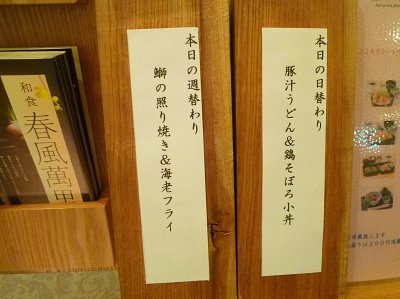 本日の日替わり
豚汁うどん&鶏そぼろ小丼
本日の週替わり
鰤の照り焼き&海老フライ
和食
春風萬里